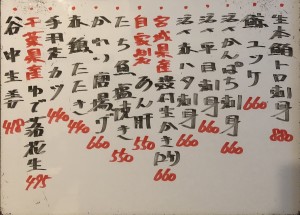 生本鮪トロ刺身 880
ユッケ 660
活〆かんぱち刺身 660
活〆平目刺身 660
活〆ハタ刺身 660
宮城県産 生かき 660
自家製 あん肝 550
たち魚塩焼き 550
かれい唐揚げ 660
たたき 440
手羽先カツ 440
千葉県産ゆで落花生 495
谷中生姜 418